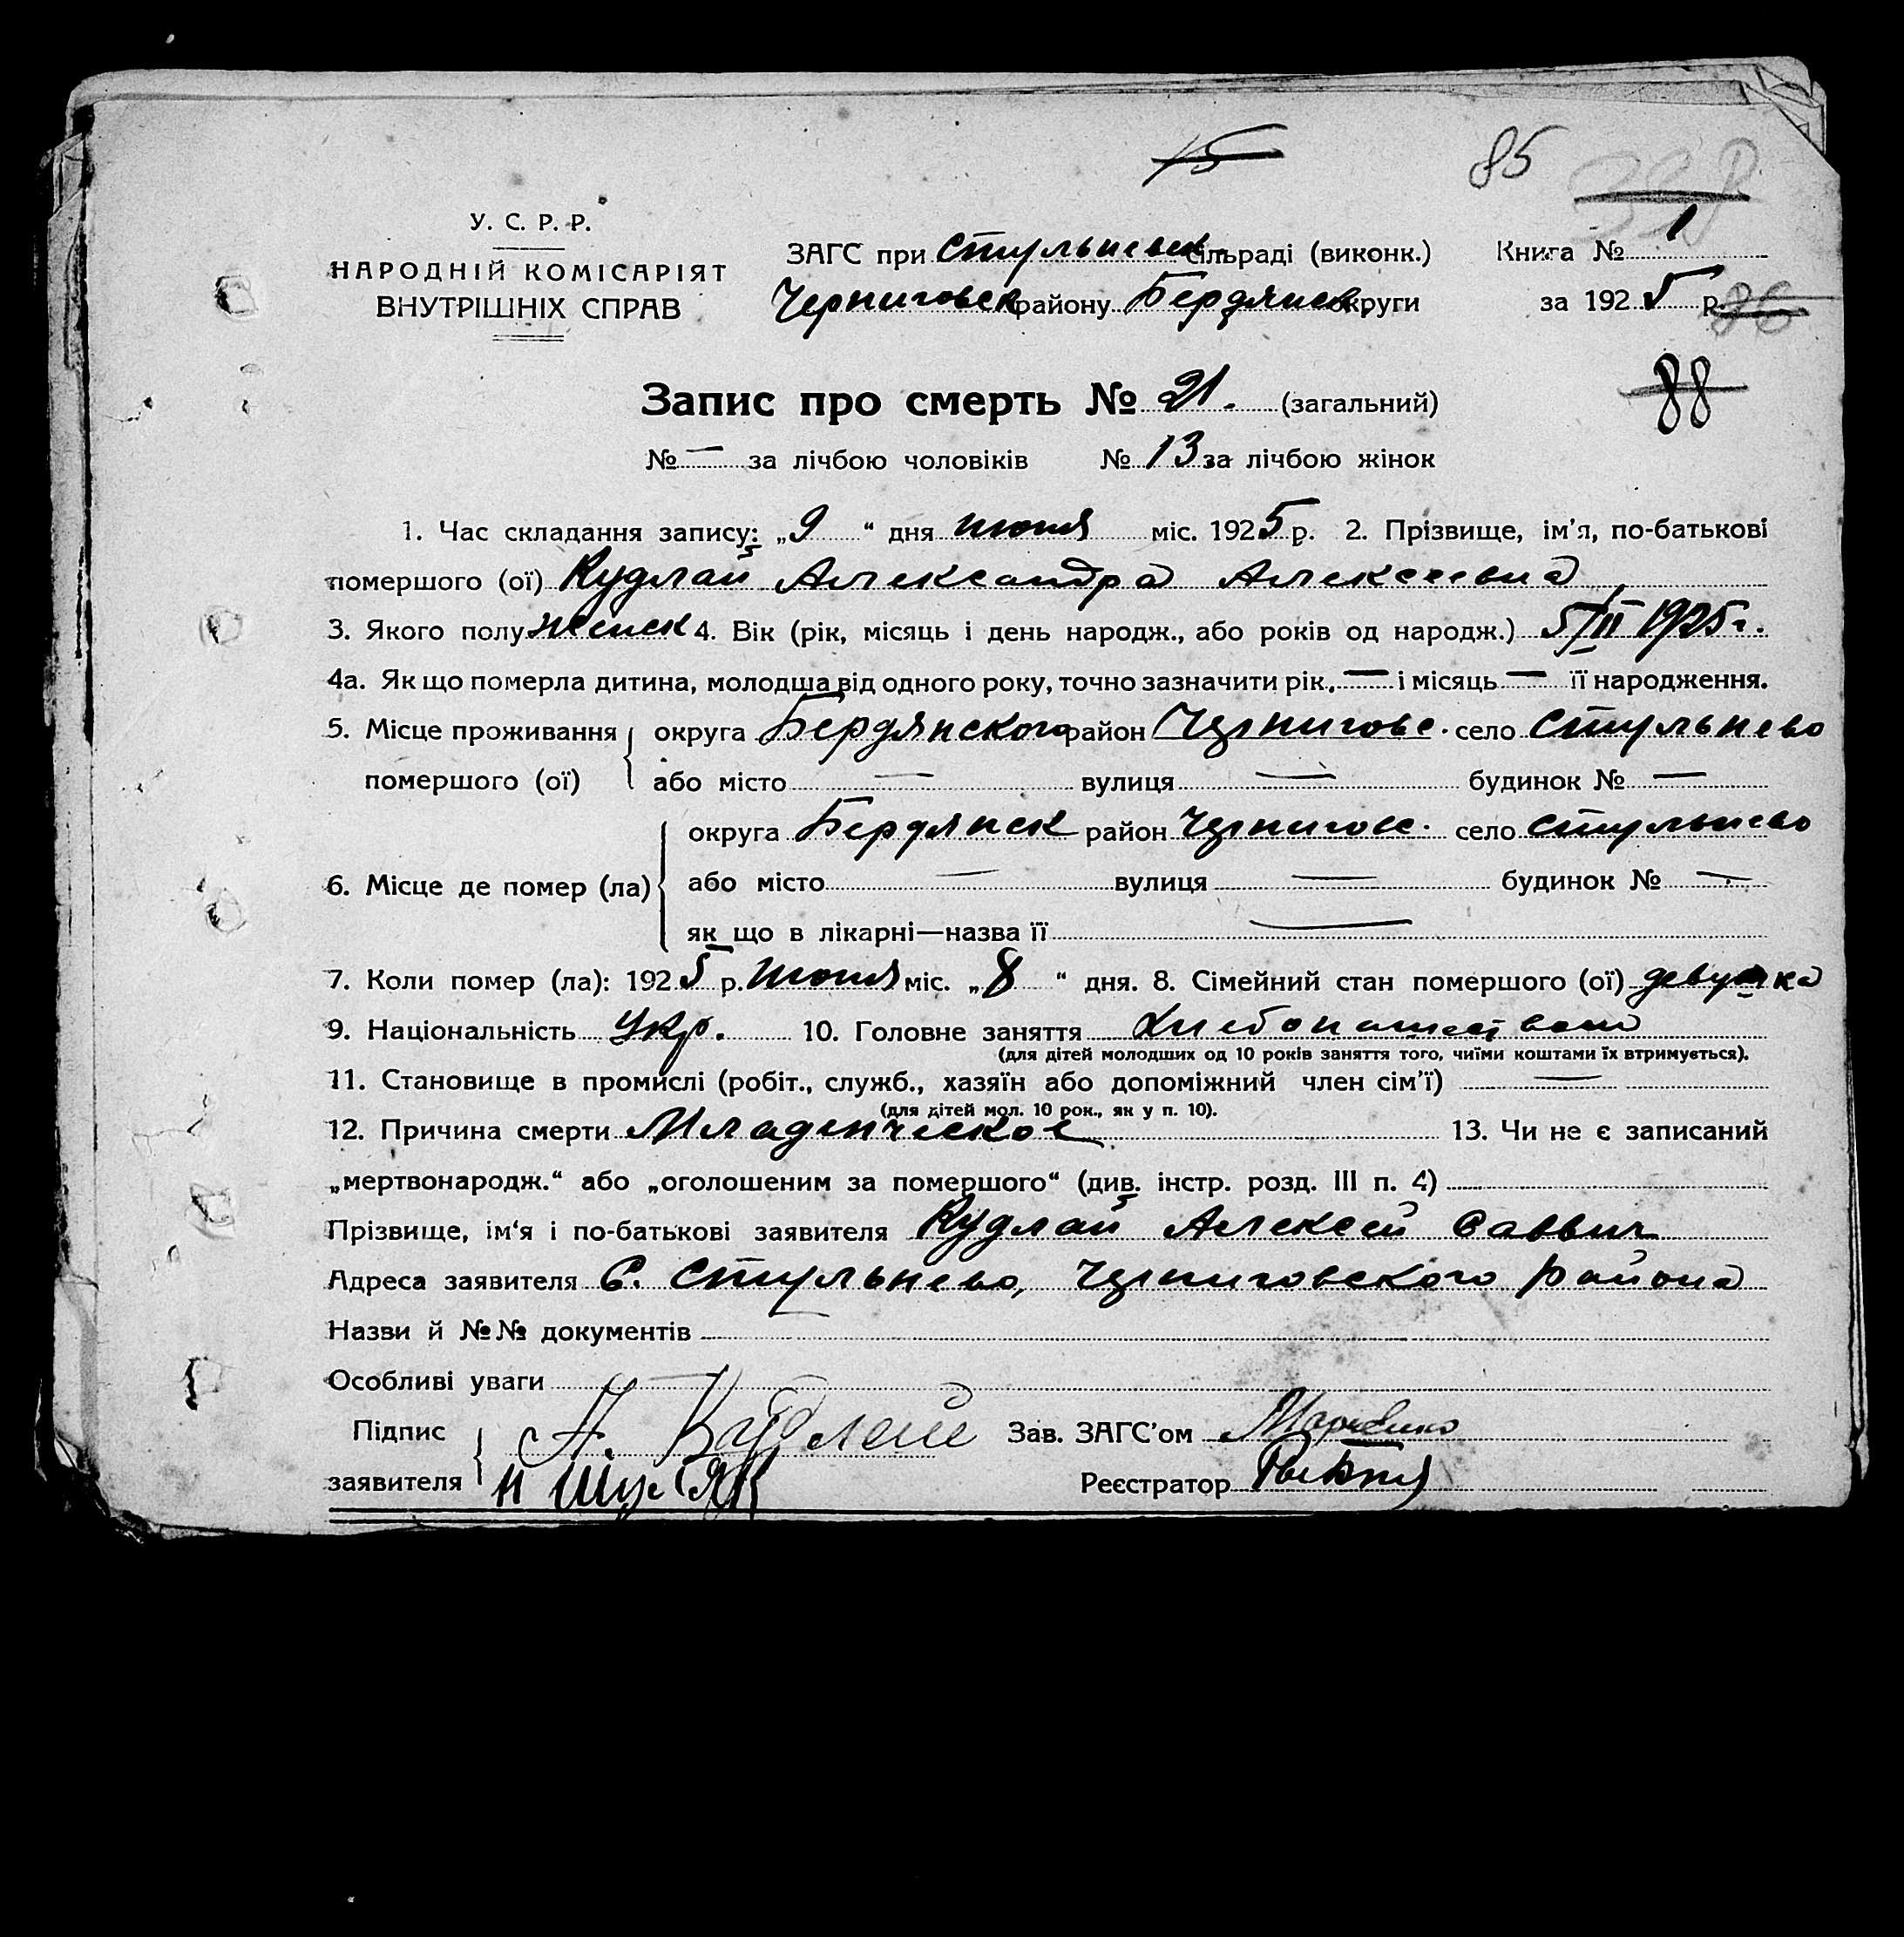 15 85
У. С. Р. Р.
НАРОДНІЙ КОМІСАРІЯТ
ВНУТРІШНІХ СПРАВ
ЗАГС при Стульневск. сільраді (виконк.) Книга № 1
Черниговск району Бердянск. округи за 1925 р. 86
88
Запис про смерть № 21. (загальний)
№ — за лічбою чоловіків № 13 за лічбою жінок
1. Час складання запису: „9“ дня июня міс. 1925 р. 2. Прізвище, ім'я, по-батькові
помершого (ої) Кудлай Александра Алексеевна
3. Якого полу женск 4. Вік (рік, місяць і день народж., або років од народж.) 5/II 1925 г.
4а. Як що померла дитина, молодша від одного року, точно зазначити рік. — і місяць — її народження.
5. Місце проживання округа Бердянского район Черниговс. село Стульнево
помершого (ої) або місто — вулиця — будинок № —
округа Бердянск район Черниговс. село Стульнево
6. Місце де помер (ла) або місто — вулиця — будинок № —
як що в лікарні—назва її —
7. Коли помер (ла): 1925 р. июня міс. „8“ дня. 8. Сімейний стан помершого (ої) девушка
9. Національність Укр. 10. Головне заняття Хлебопашеством
(для дітей молодших од 10 років заняття того, чиїми коштами їх втримується).
11. Становище в промислі (робіт., служб., хазяїн або допоміжний член сім'ї) —
(для дітей мол. 10 рок., як у п. 10).
12. Причина смерти Младенческое 13. Чи не є записаний
„мертвонародж.“ або „оголошеним за помершого“ (див. інстр. розд. III п. 4)
Прізвище, ім'я і по-батькові заявителя Кудлай Алексей Саввич
Адреса заявителя С. Стульнево, Черниговского района
Назви й №№ документів
Особливі уваги
Підпис А. Кудлай Зав. ЗАГС'ом
заявителя Реєстратор